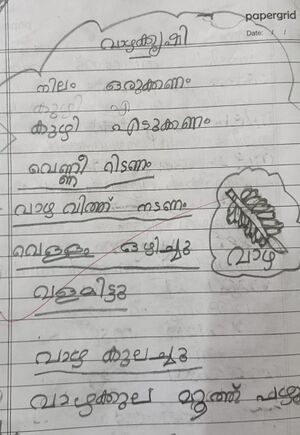 papergrid
Date: / /
വാഴക്കൃഷി
നിലം ഒരുക്കണം
കുഴി എ
കുഴി എടുക്കണം
വെണ്ണീ റിടണം
വാഴ വിത്ത് നടണം
വെള്ളം ഒഴിച്ചു
വാഴ
വളമിട്ടു
വാഴ കുലച്ചു
വാഴക്കുല മൂത്ത് പഴു